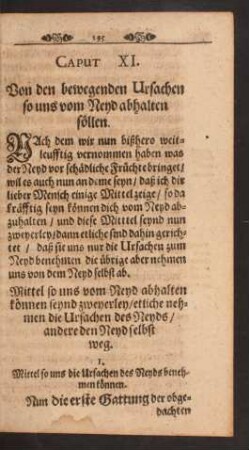 195
CAPUT XI.
Von den bewegenden Ursachen
so uns vom Neyd abhalten
söllen.
NAch dem wir nun bißhero weit-
leufftig vernommen haben was
der Neyd vor schädliche Früchte bringet/
wil es auch nun an deme seyn/ daß ich dir
lieber Mensch einige Mittel zeige/ so da
kräfftig seyn können dich vom Neyd ab-
zuhalten / und diese Mittel seynd nun
zweyerley/ dann etliche sind dahin gerich-
tet / daß sie uns nur die Ursachen zum
Neyd benehmen die übrige aber nehmen
uns von dem Neyd selbst ab.
Mittel so uns vom Neyd abhalten
können seynd zweyerley/ etliche neh-
men die Ursachen des Neyds/
andere den Neyd selbst
weg.
1.
Mittel so uns die Ursachen des Neyds beneh-
men können.
Nun die erste Gattung der obge-
dachten